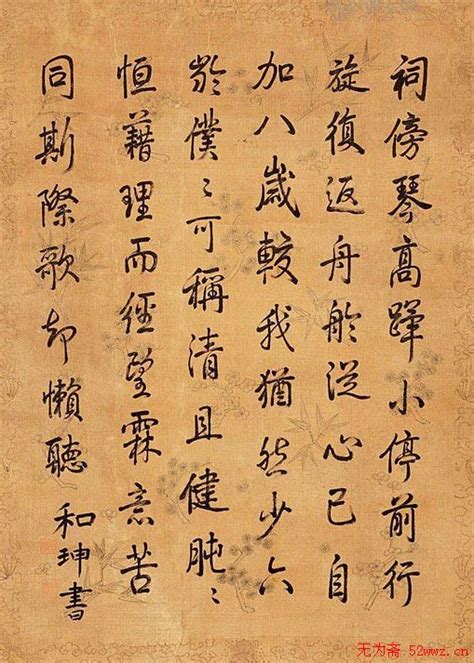 祠傍琴高蹕小停前行
旋復返舟舲從心已自
加八歲較我猶然少六
齡僕〻可稱清且健肫〻
恒藉理而經望霖意苦
同斯際歌却懶聽
和珅書
无为斋:52wwz.cn